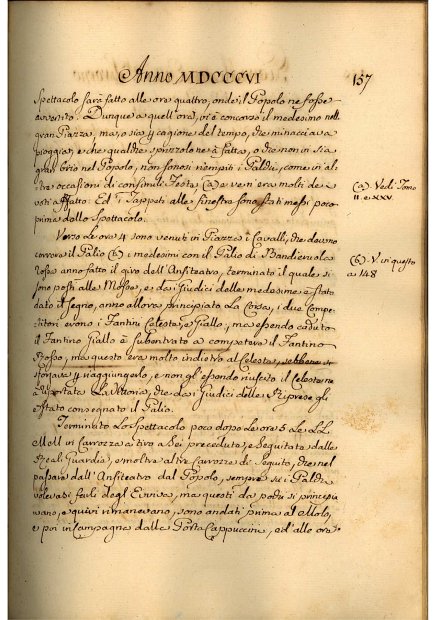 Anno MDCCCVI
157
Spettacolo sarà fatto alle ore quattro, onde il Popolo ne fosse
avvertito. Dunque a quell'ora, vi è concorso il medesimo nella
gran Piazza, ma, o sia p cagione del tempo, che minacciava
pioggia, e che qualche sprizzolo ne à fatto, o che non in sia
gran brio nel Popolo, non sonosi riempiti i Palchi, come in al-
tre occasioni di consimili Feste, (a) e ve n'era molti de
voti affatto: Ed i Tappeti alle finestre sono stati messi poco
prima dello Spettacolo.
(a) Vedi Tomo
II e XXV
Verso le ore 4 sono venuti in Piazza i Cavalli, che devono
correre il Palio (b) i medesimi con il Palio di Bandieruole
rosse anno fatto il giro dell'Anfiteatro, terminato il quale si
sono posti alle Mosse, e da' Giudici delle medesime è stato
dato il segno, anno allora principiato la Corsa, i due Compe-
titori erono i Fantini Celeste, e Giallo, ma essendo caduto
il Fantino Giallo è subentrato a competere il Fantino
Rosso, ma questo era molto indietro al Celeste, sebbene si
sforzava p raggiungerlo, e non gl'essendo riuscito il Celeste ne
à riportata la Vittoria, che da' Giudici delle Riprese gl'
è stato consegnato il Palio.
(b) V. in questo
a 148
Terminato lo Spettacolo poco dopo le ore 5 le LL.
MM. in Carrozza a tiro a Sei preceduto, e Seguitato dalle
Real Guardie, e molte altre Carrozze di Seguito, che nel
passare dall'Anfiteatro dal Popolo, sempre su i Palchi
volevasi farli degl'Evviva, ma questi da pochi si principia
vano, e quivi rimanevano, sono andati prima al Molo,
e poi in Campagna dalla Porta Cappuccini, ed alle ore